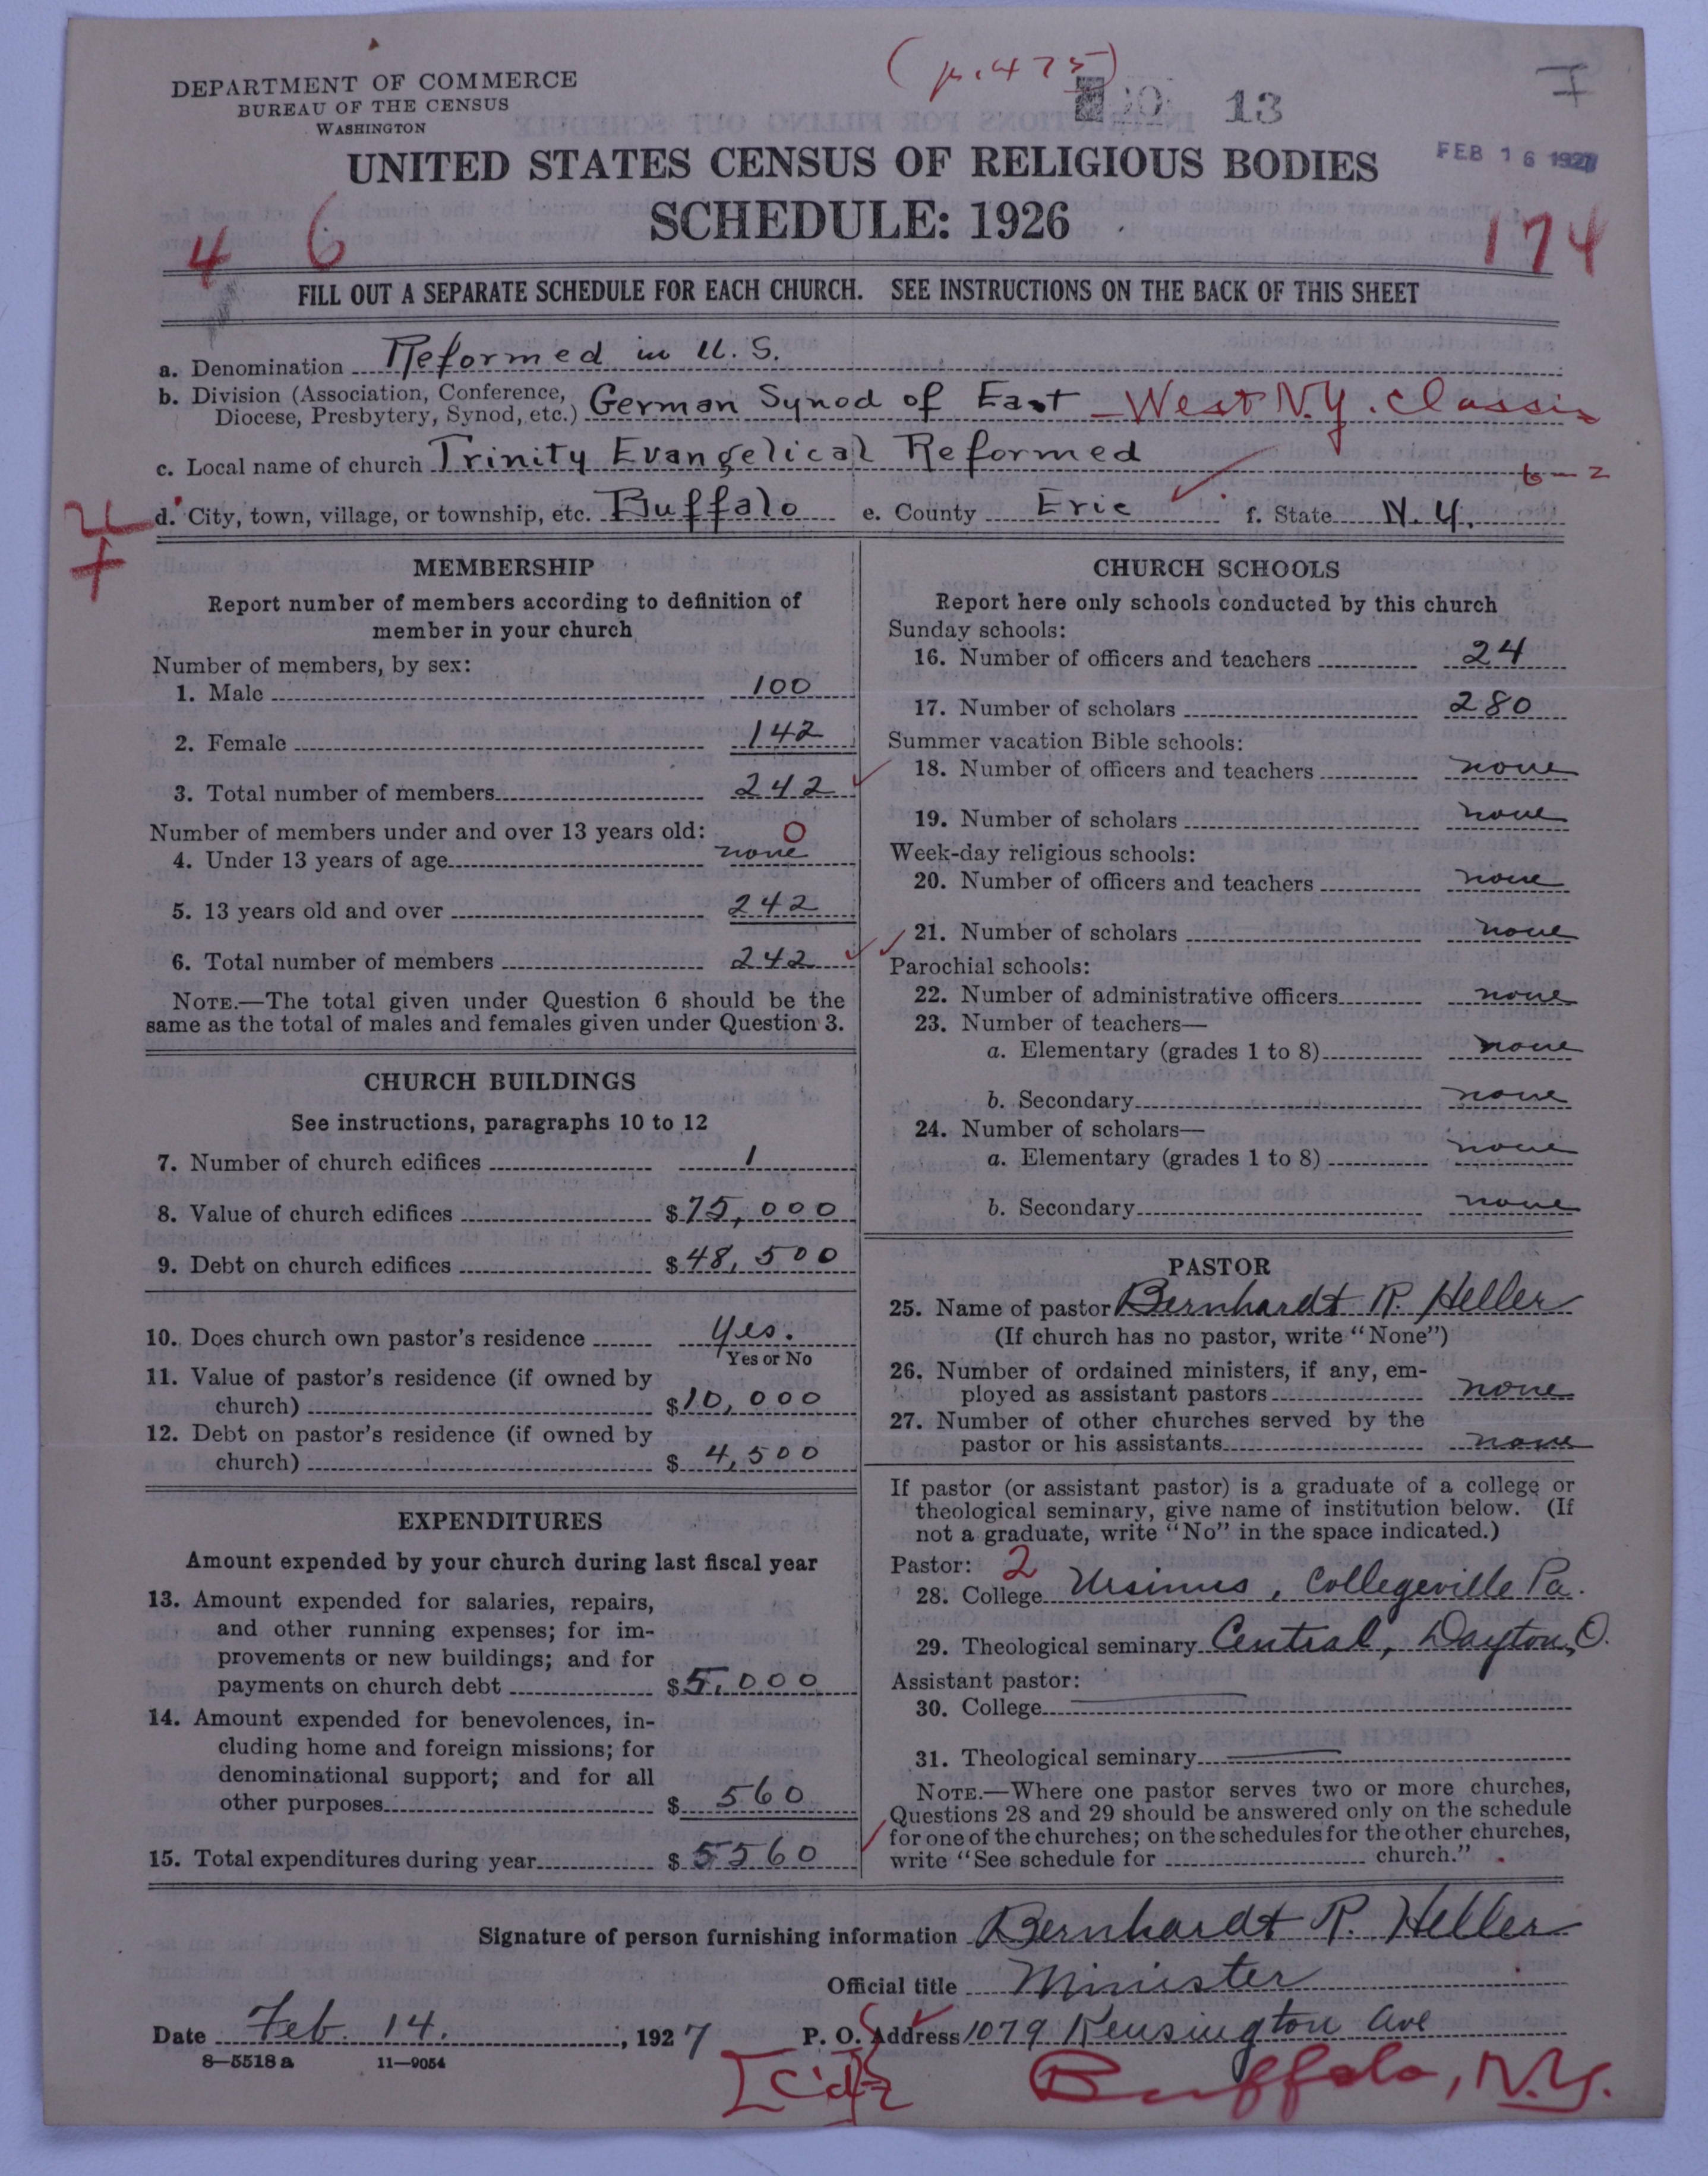 (p.475)
DEPARTMENT OF COMMERCE
BUREAU OF THE CENSUS
WASHINGTON
13
I
UNITED STATES CENSUS OF RELIGIOUS BODIES
FEB 16 1927
SCHEDULE: 1926
4 6
174
FILL OUT A SEPARATE SCHEDULE FOR EACH CHURCH. SEE INSTRUCTIONS ON THE BACK OF THIS SHEET
a. Denomination Reformed in U.S.
b. Division (Association, Conference, Diocese, Presbytery, Synod, etc.) German Synod of East - West N.Y. Classis
c. Local name of church Trinity Evangelical Reformed
d. City, town, village, or township, etc. Buffalo e. County Erie f. State N.Y.
MEMBERSHIP
Report number of members according to definition of
member in your church
Number of members, by sex:
1. Male 100
2. Female 142
3. Total number of members 242
Number of members under and over 13 years old: 0
4. Under 13 years of age none
5. 13 years old and over 242
6. Total number of members 242
NOTE.—The total given under Question 6 should be the
same as the total of males and females given under Question 3.
CHURCH BUILDINGS
See instructions, paragraphs 10 to 12
7. Number of church edifices 1
8. Value of church edifices $75,000
9. Debt on church edifices $48,500
10. Does church own pastor's residence Yes.
Yes or No
11. Value of pastor's residence (if owned by
church) $10,000
12. Debt on pastor's residence (if owned by
church) $4,500
EXPENDITURES
Amount expended by your church during last fiscal year
13. Amount expended for salaries, repairs,
and other running expenses; for im-
provements or new buildings; and for
payments on church debt $5,000
14. Amount expended for benevolences, in-
cluding home and foreign missions; for
denominational support; and for all
other purposes $560
15. Total expenditures during year $5560
CHURCH SCHOOLS
Report here only schools conducted by this church
Sunday schools:
16. Number of officers and teachers 24
17. Number of scholars 280
Summer vacation Bible schools:
18. Number of officers and teachers none
19. Number of scholars none
Week-day religious schools:
20. Number of officers and teachers none
21. Number of scholars none
Parochial schools:
22. Number of administrative officers none
23. Number of teachers—
a. Elementary (grades 1 to 8) none
b. Secondary none
24. Number of scholars—
a. Elementary (grades 1 to 8) none
b. Secondary none
PASTOR
25. Name of pastor Bernhardt R. Heller
(If church has no pastor, write "None")
26. Number of ordained ministers, if any, em-
ployed as assistant pastors none
27. Number of other churches served by the
pastor or his assistants none
If pastor (or assistant pastor) is a graduate of a college or
theological seminary, give name of institution below. (If
not a graduate, write "No" in the space indicated.)
Pastor: 2
28. College Ursinus, Collegeville Pa.
29. Theological seminary Central, Dayton, O.
Assistant pastor:
30. College
31. Theological seminary
NOTE.—Where one pastor serves two or more churches,
Questions 28 and 29 should be answered only on the schedule
for one of the churches; on the schedules for the other churches,
write "See schedule for church."
Signature of person furnishing information Bernhardt R. Heller
Official title Minister
Date Feb. 14., 1927 P. O. Address 1079 Kensington Ave
8—5518a 11—9054
Buffalo, N.Y.